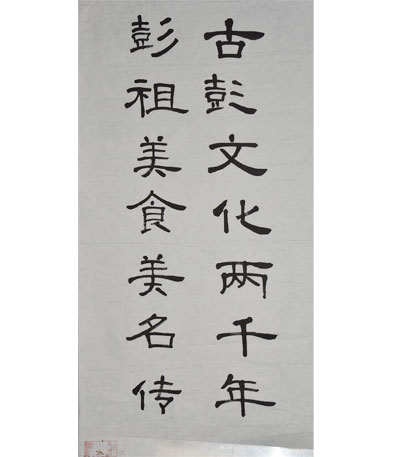 古彭文化两千年
彭祖美食美名传